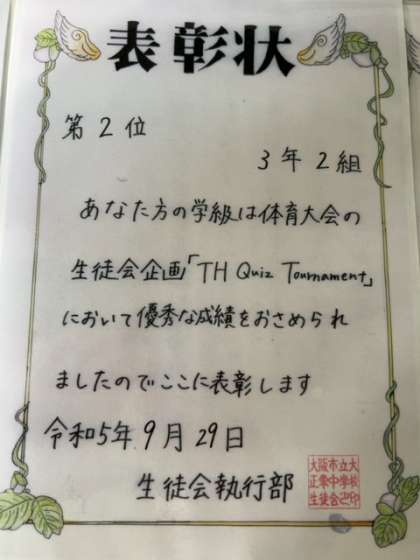 表彰状
第2位
3年2組
あなた方の学級は体育大会の
生徒会企画「TH Quiz Tournament」
において優秀な成績をおさめられ
ましたのでここに表彰します
令和5年9月29日
生徒会執行部
大阪市立大
正東中学校
生徒会之印